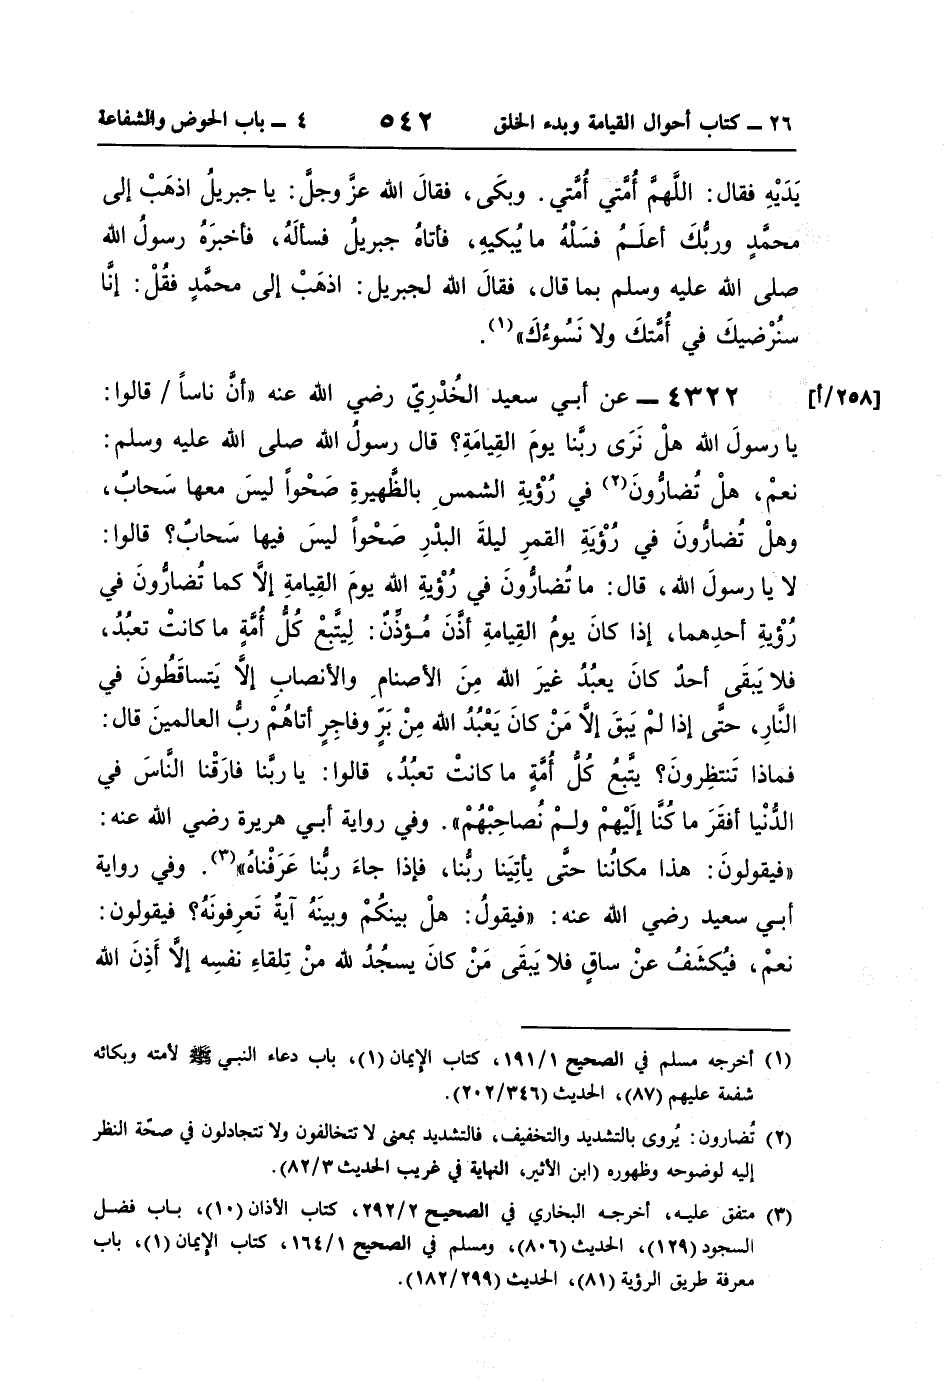 ٢٦ ــ كتاب أحوال القيامة وبدء الخلق ٥٤٢ ٤ ــ باب الحوض والشفاعة
يَدَيْهِ فقال: اللَّهمَّ أُمَّتي أُمَّتي. وبكَى، فقالَ الله عزَّ وجلَّ: يا جبريلُ اذهَبْ إلى
محمَّدٍ وربُّكَ أعلَمُ فسَلْهُ ما يُبكيهِ، فأتاهُ جبريلُ فسألَهُ، فأخبرَهُ رسولُ الله
صلى الله عليه وسلم بما قال، فقالَ الله لجبريل: اذهَبْ إلى محمَّدٍ فقُلْ: إنَّا
سنُرْضيكَ في أُمَّتكَ ولا نَسُوءُكَ»(١).
[٢٥٨/أ] ٤٣٢٢ ــ عن أبي سعيد الخُدْريّ رضي الله عنه «أنَّ ناساً / قالوا:
يا رسولَ الله هلْ نَرَى ربَّنا يومَ القِيامَةِ؟ قال رسولُ الله صلى الله عليه وسلم:
نعمْ، هلْ تُضارُّونَ(٢) في رُؤْيةِ الشمسِ بالظَّهيرةِ صَحْواً ليسَ معها سَحابٌ،
وهلْ تُضارُّونَ في رُؤْيَةِ القمرِ ليلةَ البدْرِ صَحْواً ليسَ فيها سَحابٌ؟ قالوا:
لا يا رسولَ الله، قال: ما تُضارُّونَ في رُؤْيةِ الله يومَ القِيامةِ إلَّا كما تُضارُّونَ في
رُؤْيةِ أحدِهما، إذا كانَ يومُ القِيامةِ أذَّنَ مُؤذِّنٌ: لِيتَّبِعْ كُلُّ أُمَّةٍ ما كانتْ تعبُدُ،
فلا يَبقَى أحدٌ كانَ يعبُدُ غيرَ الله مِنَ الأصنامِ والأنصابِ إلَّا يَتساقَطُونَ في
النَّارِ، حتَّى إذا لمْ يَبقَ إلَّا مَنْ كانَ يَعْبُدُ الله مِنْ بَرٍّ وفاجِرٍ أتاهُمْ ربُّ العالمينَ قال:
فماذا تَنتظِرونَ؟ يتَّبِعُ كُلُّ أُمَّةٍ ما كانتْ تعبُدُ، قالوا: يا ربَّنا فارَقْنا النَّاسَ في
الدُّنْيا أفقَرَ ما كُنَّا إلَيْهِمْ ولمْ نُصاحِبْهُمْ». وفي رواية أبي هريرة رضي الله عنه:
«فيقولونَ: هذا مكانُنا حتَّى يأتِيَنا ربُّنا، فإذا جاءَ ربُّنا عَرَفْناهُ»(٣). وفي رواية
أبي سعيد رضي الله عنه: «فيقولُ: هلْ بينكُمْ وبينَهُ آيةٌ تَعرِفونَهُ؟ فيقولون:
نعمْ، فيُكشَفُ عنْ ساقٍ فلا يَبقى مَنْ كانَ يسجُدُ لله منْ تِلقاءِ نفسِه إلَّا أَذِنَ الله
(١) أخرجه مسلم في الصحيح ١٩١/١، كتاب الإيمان (١)، باب دعاء النبي ﷺ لأمته وبكائه
شفقة عليهم (٨٧)، الحديث (٢٠٢/٣٤٦).
(٢) تُضارون: يُروى بالتشديد والتخفيف، فالتشديد بمعنى لا تتخالفون ولا تتجادلون في صحّة النظر
إليه لوضوحه وظهوره (ابن الأثير، النهاية في غريب الحديث ٨٢/٣).
(٣) متفق عليه، أخرجه البخاري في الصحيح ٢٩٢/٢، كتاب الأذان (١٠)، باب فضل
السجود (١٢٩)، الحديث (٨٠٦)، ومسلم في الصحيح ١٦٤/١، كتاب الإيمان (١)، باب
معرفة طريق الرؤية (٨١)، الحديث (١٨٢/٢٩٩).